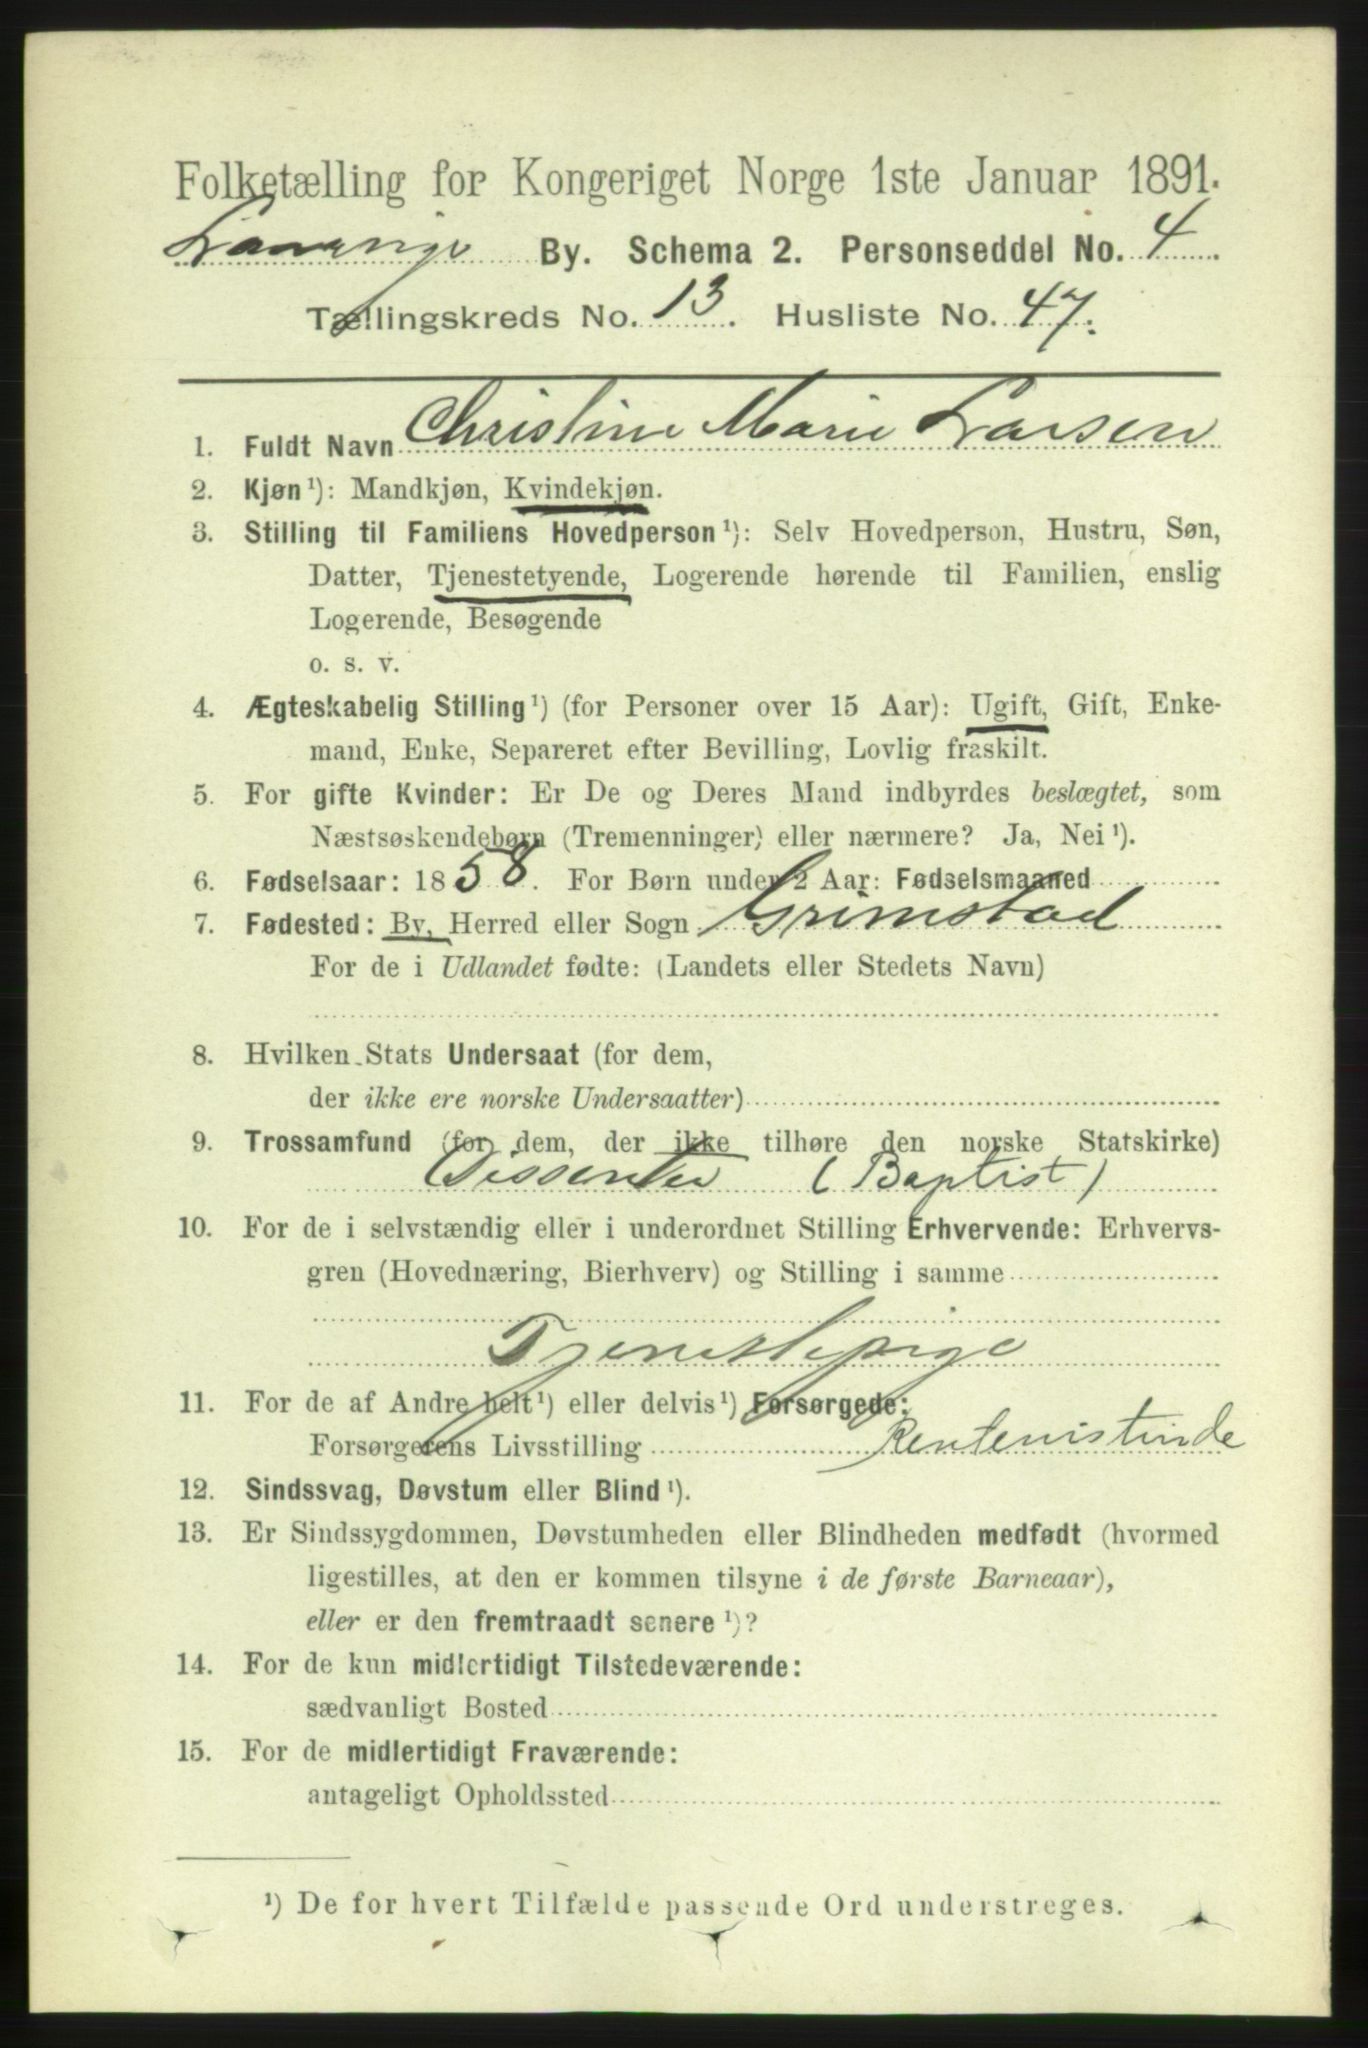 Folketælling for Kongeriget Norge 1ste Januar 1891.
By. Schema 2. Personseddel No. 4
Tællingskreds No. 13. Husliste No. 47.
1. Fuldt Navn Christine Marie Larsen
2. Kjøn ¹): Mandkjøn, Kvindekjøn.
3. Stilling til Familiens Hovedperson ¹): Selv Hovedperson, Hustru, Søn,
Datter, Tjenestetyende, Logerende hørende til Familien, enslig
Logerende, Besøgende
o. s. v.
4. Ægteskabelig Stilling ¹) (for Personer over 15 Aar): Ugift, Gift, Enke-
mand, Enke, Separeret efter Bevilling, Lovlig fraskilt.
5. For gifte Kvinder: Er De og Deres Mand indbyrdes beslægtet, som
Næstsøskendebørn (Tremenninger) eller nærmere? Ja, Nei ¹).
6. Fødselsaar: 1858. For Børn under 2 Aar: Fødselsmaaned
7. Fødested: By, Herred eller Sogn Grimstad
For de i Udlandet fødte: (Landets eller Stedets Navn)
8. Hvilken Stats Undersaat (for dem,
der ikke ere norske Undersaatter)
9. Trossamfund (for dem, der ikke tilhøre den norske Statskirke)
Dissenter (Baptist)
10. For de i selvstændig eller i underordnet Stilling Erhvervende: Erhvervs-
gren (Hovednæring, Bierhverv) og Stilling i samme
Tjenestepige
11. For de af Andre helt ¹) eller delvis ¹) Forsørgede:
Forsørgerens Livsstilling Rentenistinde
12. Sindssvag, Døvstum eller Blind ¹).
13. Er Sindssygdommen, Døvstumheden eller Blindheden medfødt (hvormed
ligestilles, at den er kommen tilsyne i de første Barneaar),
eller er den fremtraadt senere ¹)?
14. For de kun midlertidigt Tilstedeværende:
sædvanligt Bosted
15. For de midlertidigt Fraværende:
antageligt Opholdssted
¹) De for hvert Tilfælde passende Ord understreges.